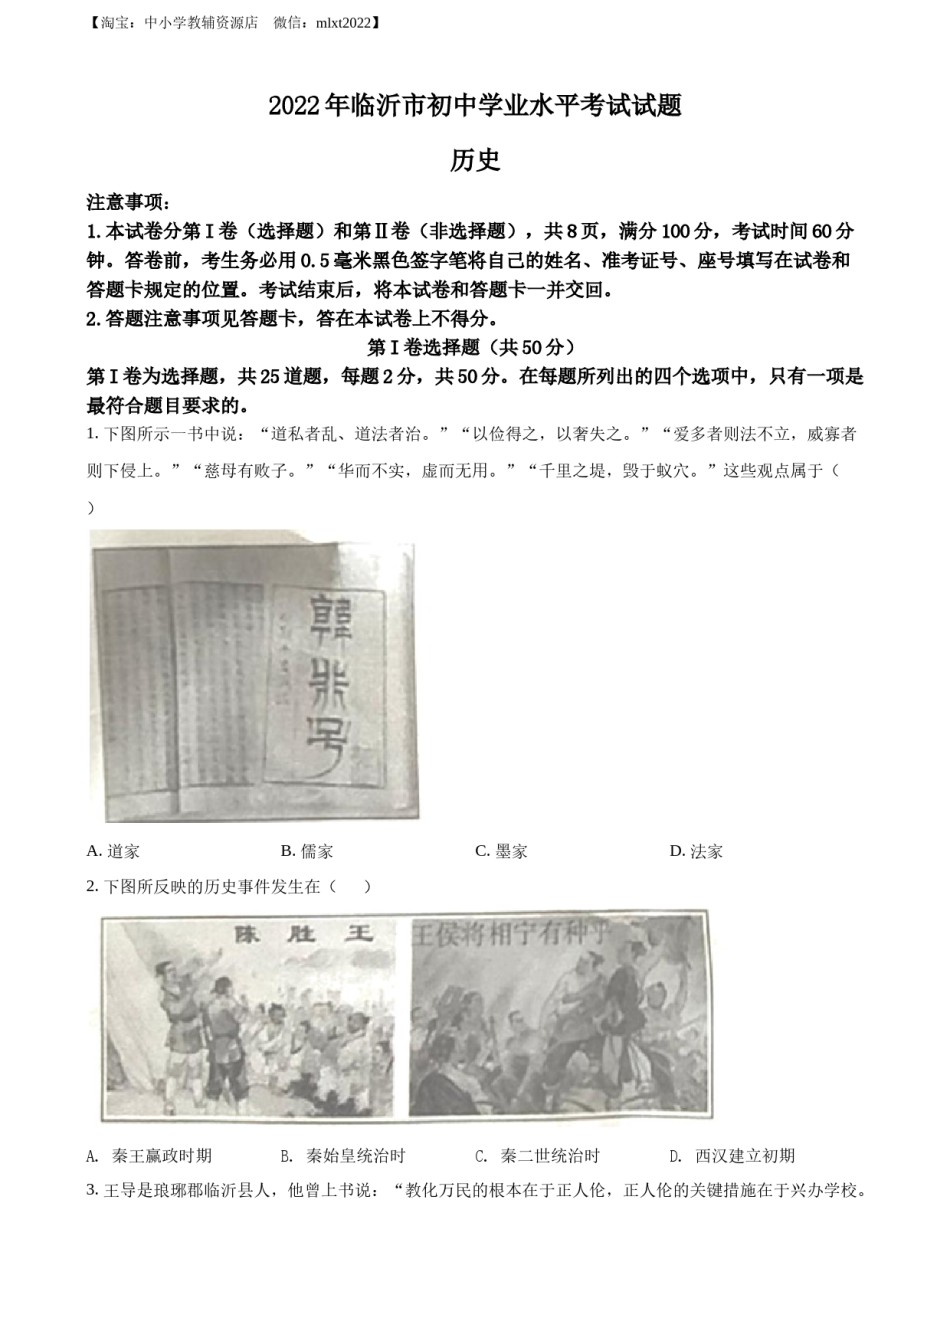 【淘宝：中小学教辅资源店 微信：mlxt2022】
2022 年临沂市初中学业水平考试试题
历史
注意事项：
1.本试卷分第 I 卷（选择题）和第 II 卷（非选择题），共 8 页，满分 100 分，考试时间 60 分
钟。答卷前，考生务必用 0.5 毫米黑色签字笔将自己的姓名、准考证号、座号填写在试卷和
答题卡规定的位置。考试结束后，将本试卷和答题卡一并交回。
2.答题注意事项见答题卡，答在本试卷上不得分。
第 I 卷选择题（共 50 分）
第 I 卷为选择题，共 25 道题，每题 2 分，共 50 分。在每题所列出的四个选项中，只有一项是
最符合题目要求的。
1. 下图所示一书中说：“道私者乱、道法者治。”“以俭得之，以奢失之。”“爱多者则法不立，威寡者
则下侵上。”“慈母有败子。”“华而不实，虚而无用。”“千里之堤，毁于蚁穴。”这些观点属于（
）
韩非子
A. 道家 B. 儒家 C. 墨家 D. 法家
2. 下图所反映的历史事件发生在（ ）
陈胜王 王侯将相宁有种乎
A. 秦王赢政时期 B. 秦始皇统治时 C. 秦二世统治时 D. 西汉建立初期
3. 王导是琅琊郡临沂县人，他曾上书说：“教化万民的根本在于正人伦，正人伦的关键措施在于兴办学校。